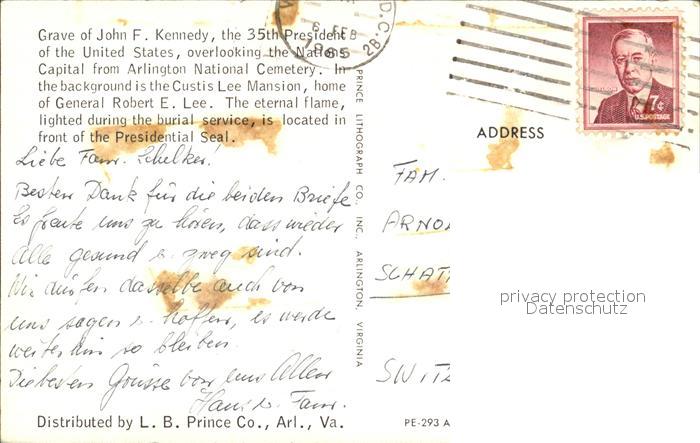 Grave of John F. Kennedy, the 35th President
of the United States, overlooking the Nations
Capital from Arlington National Cemetery. In
the background is the Custis Lee Mansion, home
of General Robert E. Lee. The eternal flame,
lighted during the burial service, is located in
front of the Presidential Seal.
Liebe Fam. Schelker!
Besten Dank für die beiden Briefe
Es freute uns zu hören, dass wieder
Alle gesund u. zweg sind.
Wir dürfen dasselbe auch von
uns sagen u. hoffen, es werde
weiterhin so bleiben.
Die besten Grüsse von uns Allen
Hans u. Fam.
Distributed by L. B. Prince Co., Arl., Va.
PRINCE LITHOGRAPH CO., INC., ARLINGTON, VIRGINIA
D.C.
6 FEB
1965
2B
7¢
U.S. POSTAGE
ADDRESS
FAM.
ARNO
SCHAT
SWIT
privacy protection
Datenschutz
PE-293 A